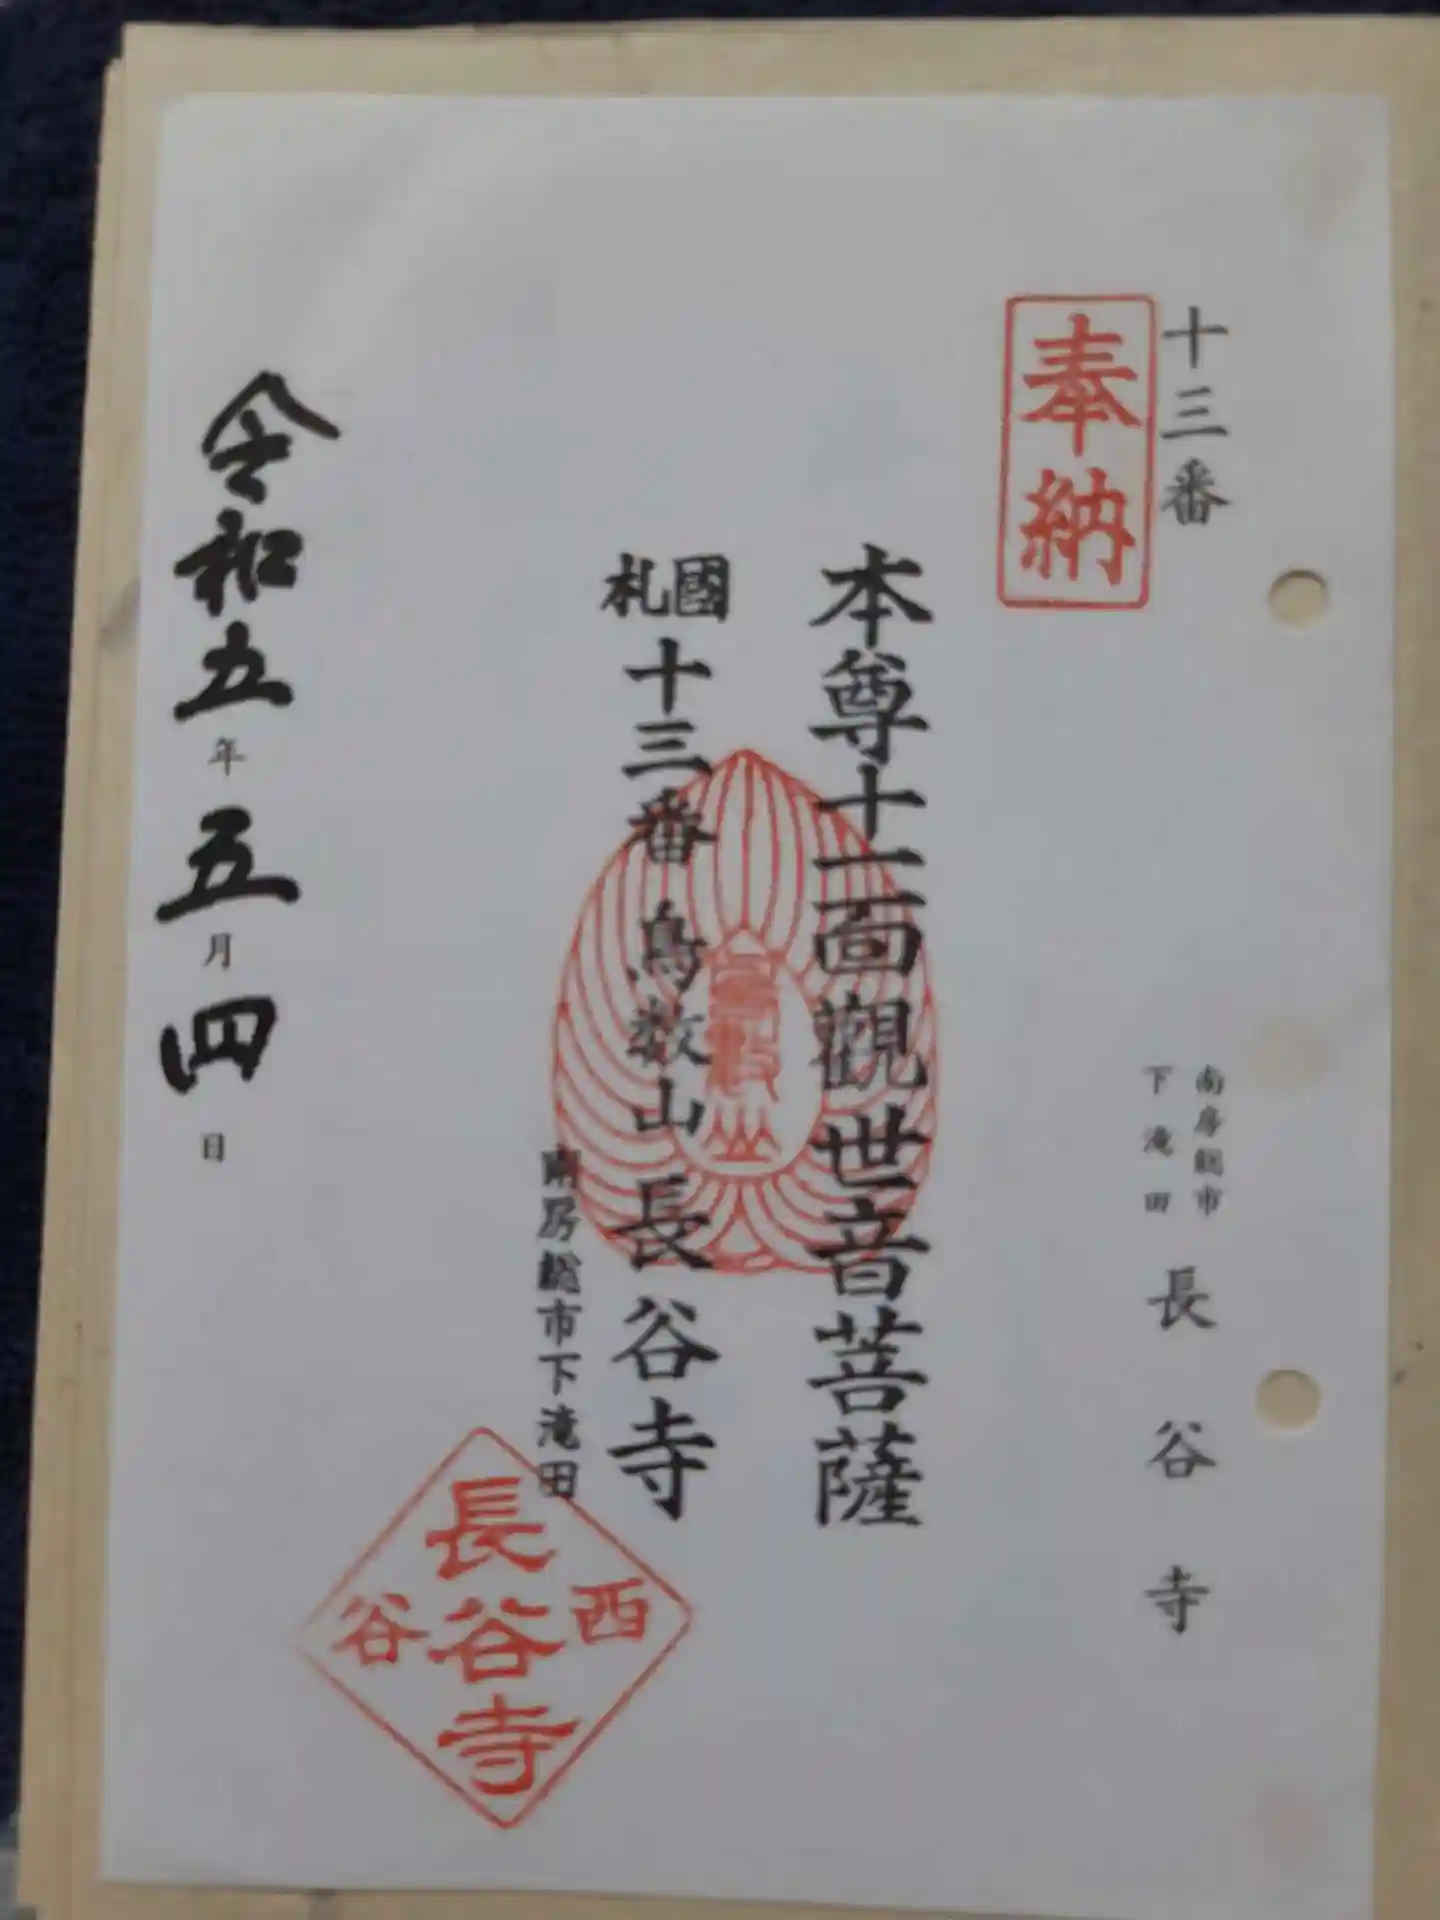 十三番
南房総市
下滝田
長谷寺
奉納
本尊十一面觀世音菩薩
國札
十三番 鳥数山 長谷寺
南房総市下滝田
長谷寺
西
谷
令和五年五月四日